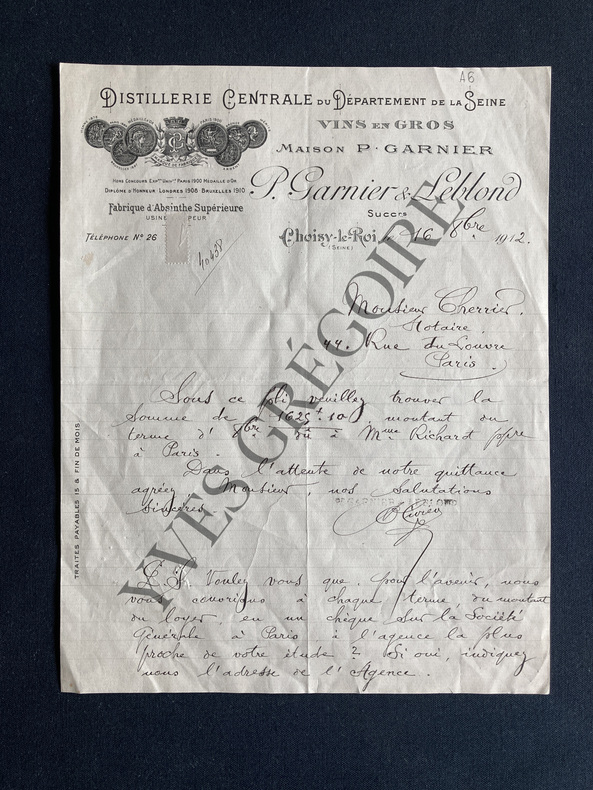 A6
DISTILLERIE CENTRALE DU DÉPARTEMENT DE LA SEINE
VINS EN GROS
MAISON P. GARNIER
HORS CONCOURS EXPon UNIVlle PARIS 1900 MÉDAILLE D'OR
DIPLÔME D'HONNEUR LONDRES 1908 BRUXELLES 1910
P. Garnier & Leblond
SUCCrs
Fabrique d'Absinthe Supérieure
USINE PEUR
TÉLÉPHONE No 26
Choisy-le-Roi, le 16 8bre 1912.
(SEINE)
Monsieur Cherrier.
Notaire.
44. Rue du Louvre
Paris.
Sous ce pli veuillez trouver la
somme de 1625f.10, montant du
terme d' 8bre dû à Mme Richard ppre
à Paris.
Dans l'attente de notre quittance
agréez Monsieur, nos salutations
sincères
P. GARNIER & LEBLOND
TRAITES PAYABLES 15 & FIN DE MOIS.
Voulez vous que, pour l'avenir, nous
vous couvrions à chaque terme du montant
du loyer, en un chèque sur la Société
Générale à Paris à l'agence la plus
proche de votre étude ? Si oui, indiquez
nous l'adresse de l'Agence.
YVES GRÉGOIRE